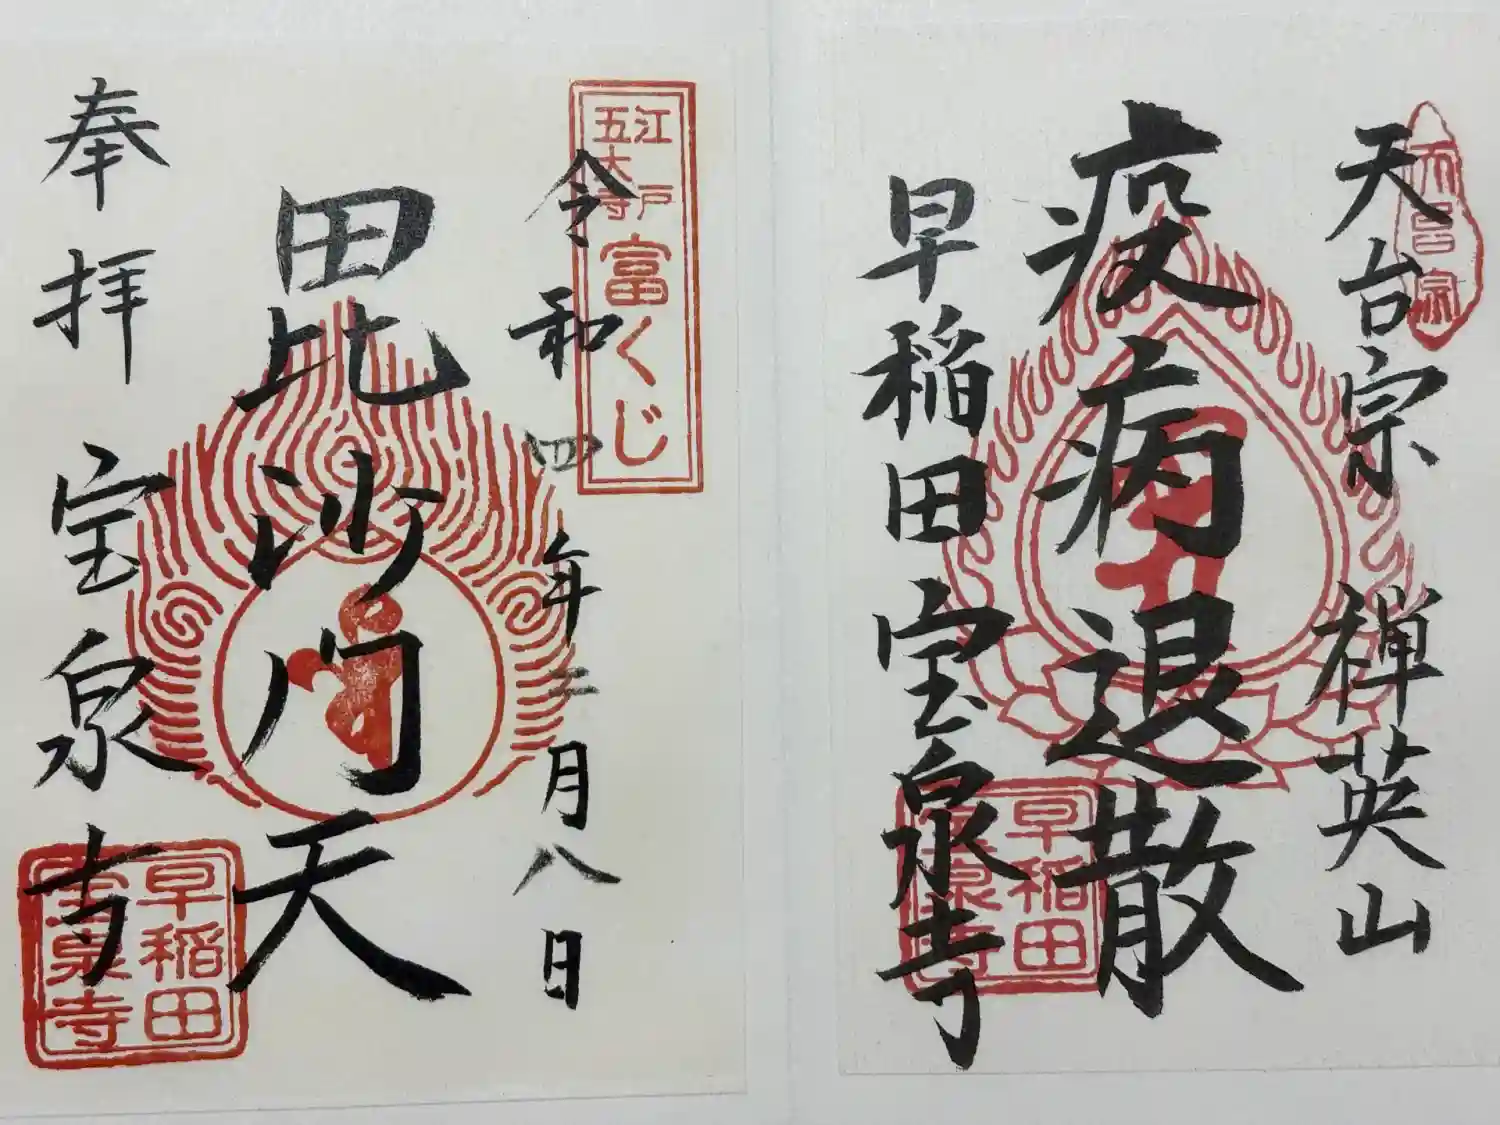 天台宗
禅英山
疫病退散
早稲田宝泉寺
天台宗
早稲田
宝泉寺
江戸
五大寺
富くじ
令和四年二月八日
毘沙門天
奉拝
宝泉寺
早稲田
宝泉寺